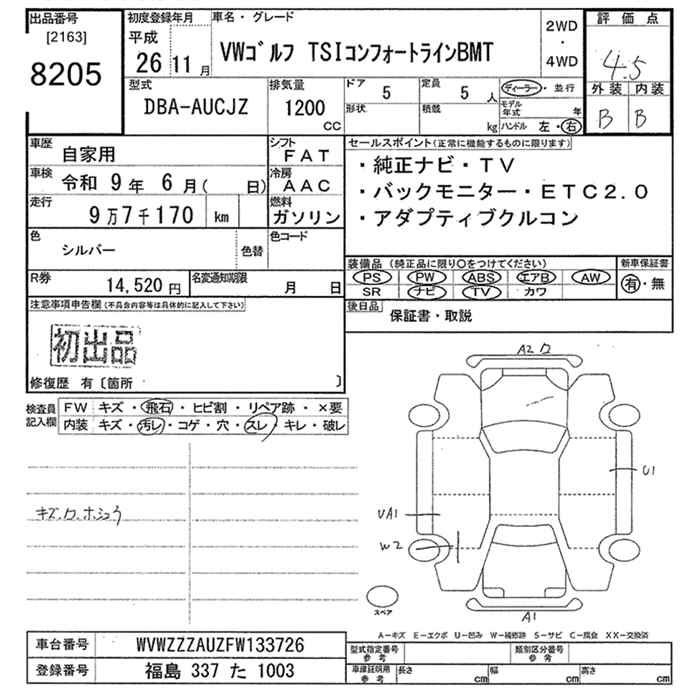 出品番号
[2163]
8205
初度登録年月
平成
26 11月
車名・グレード
VWゴルフ TSIコンフォートラインBMT
2WD
・
4WD
評価点
4.5
外装 内装
B B
型式
DBA-AUCJZ
排気量
1200
CC
ドア 5
定員 5 人
形状
積載 kg
ディーラー・並行
モデル年式 年
ハンドル 左・右
車歴 自家用
シフト FAT
車検 令和 9年 6月( 日)
冷房 AAC
走行 9万7千170 km
燃料 ガソリン
色 シルバー 色替
色コード
R券 14,520円
名変通知期限 月 日
セールスポイント(正常に機能するものに限ります)
・純正ナビ・TV
・バックモニター・ETC2.0
・アダプティブクルコン
装備品(純正品に限り○をつけてください)
PS PW ABS エアB AW
SR ナビ TV カワ
新車保証書
有・無
後日品
保証書・取説
注意事項申告欄(不具合内容等は具体的に記入して下さい)
初出品
修復歴 有〔箇所 〕
検査員記入欄
FW キズ・飛石・ヒビ割・リペア跡・×要
内装 キズ・汚レ・コゲ・穴・スレ・キレ・破レ
キズ.ワ.ホショウ
A2 ワ
U1
UA1
W2
A1
スペア
A-キズ E-エクボ U-凹み W-補修跡 S-サビ C-腐食 XX-交換済
車台番号 WVWZZZAUZFW133726
登録番号 福島 337 た 1003
型式指定番号 参考
類別区分番号 参考
車庫証明用 参考
長さ cm
幅 cm
高さ cm